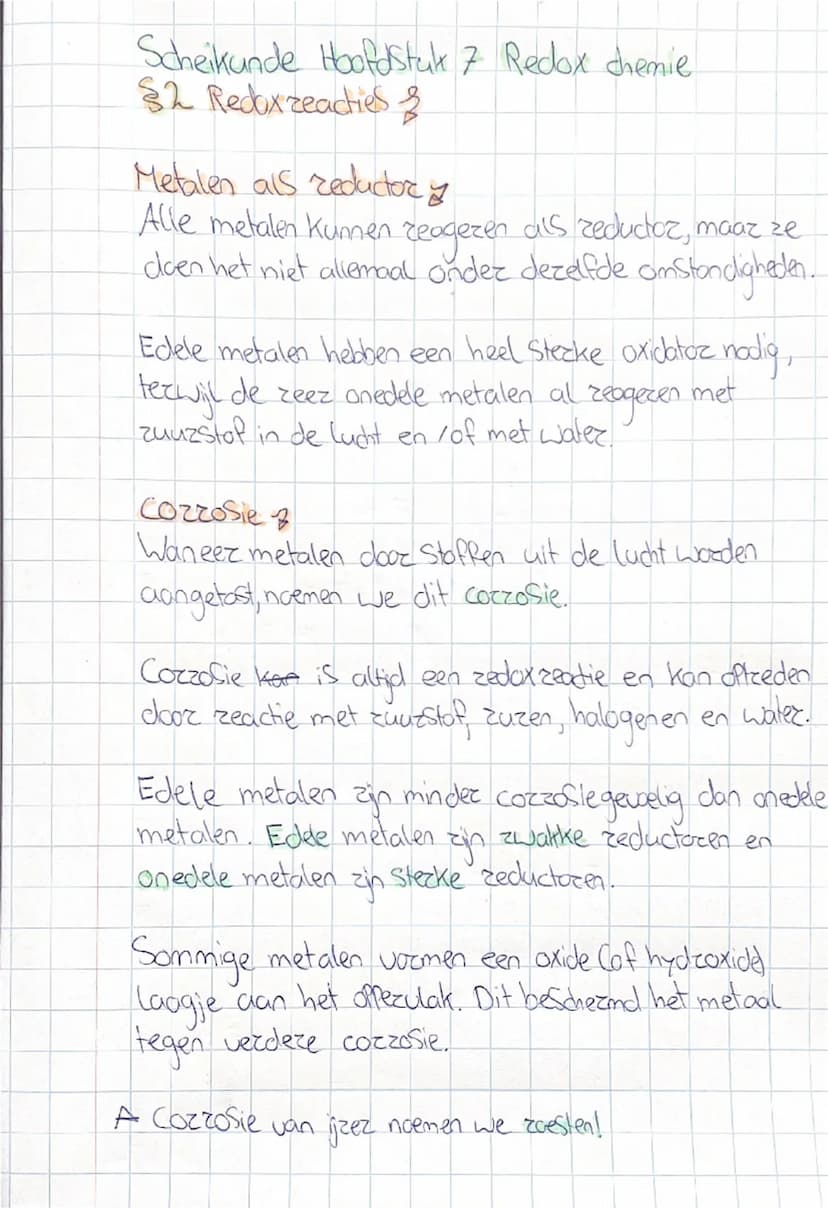 Scheikunde Hoofdstuk 7 Redox chemie
§2 Redoxreacties
Metalen als reductor
Alle metalen kunnen reageren als reductor, maar ze
doen het niet allemaal onder dezelfde omstandigheden.
Edele metalen hebben een heel sterke oxidator nodig,
terwijl de zeer onedele metalen al reageren met
zuurstof in de lucht en /of met water.
Corrosie
Waneer metalen door stoffen uit de lucht worden
aangetast, noemen we dit corrosie.
Corrosie kan is altijd een redoxreactie en kan optreden
door reactie met zuurstof, zuren, halogenen en water.
Edele metalen zijn minder corrosiegevoelig dan onedele
metalen. Edele metalen zijn zwakke reductoren en
onedele metalen zijn sterke reductoren.
Sommige metalen vormen een oxide (of hydroxide)
laagje aan het oppervlak. Dit beschermd het metaal
tegen verdere corrosie.
Corrosie van ijzer noemen we roesten!